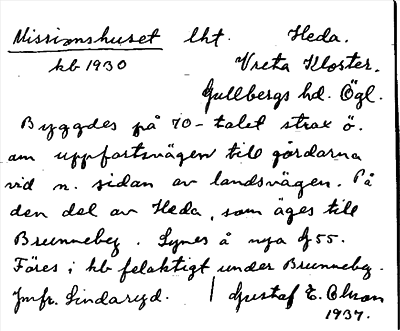 Missionshuset lht. Heda.
kb 1930 Vreta Kloster.
Gullbergs hd. Ögl.
Byggdes på 70-talet strax ö.
om uppfartsvägen till gårdarna
vid n. sidan av landsvägen. På
den del av Heda, som äges till
Brunneby. Synes å nya G55.
Föres i kb felaktigt under Brunneby.
Jmfr. Lindaryd. Gustaf E. Olsson
1937.